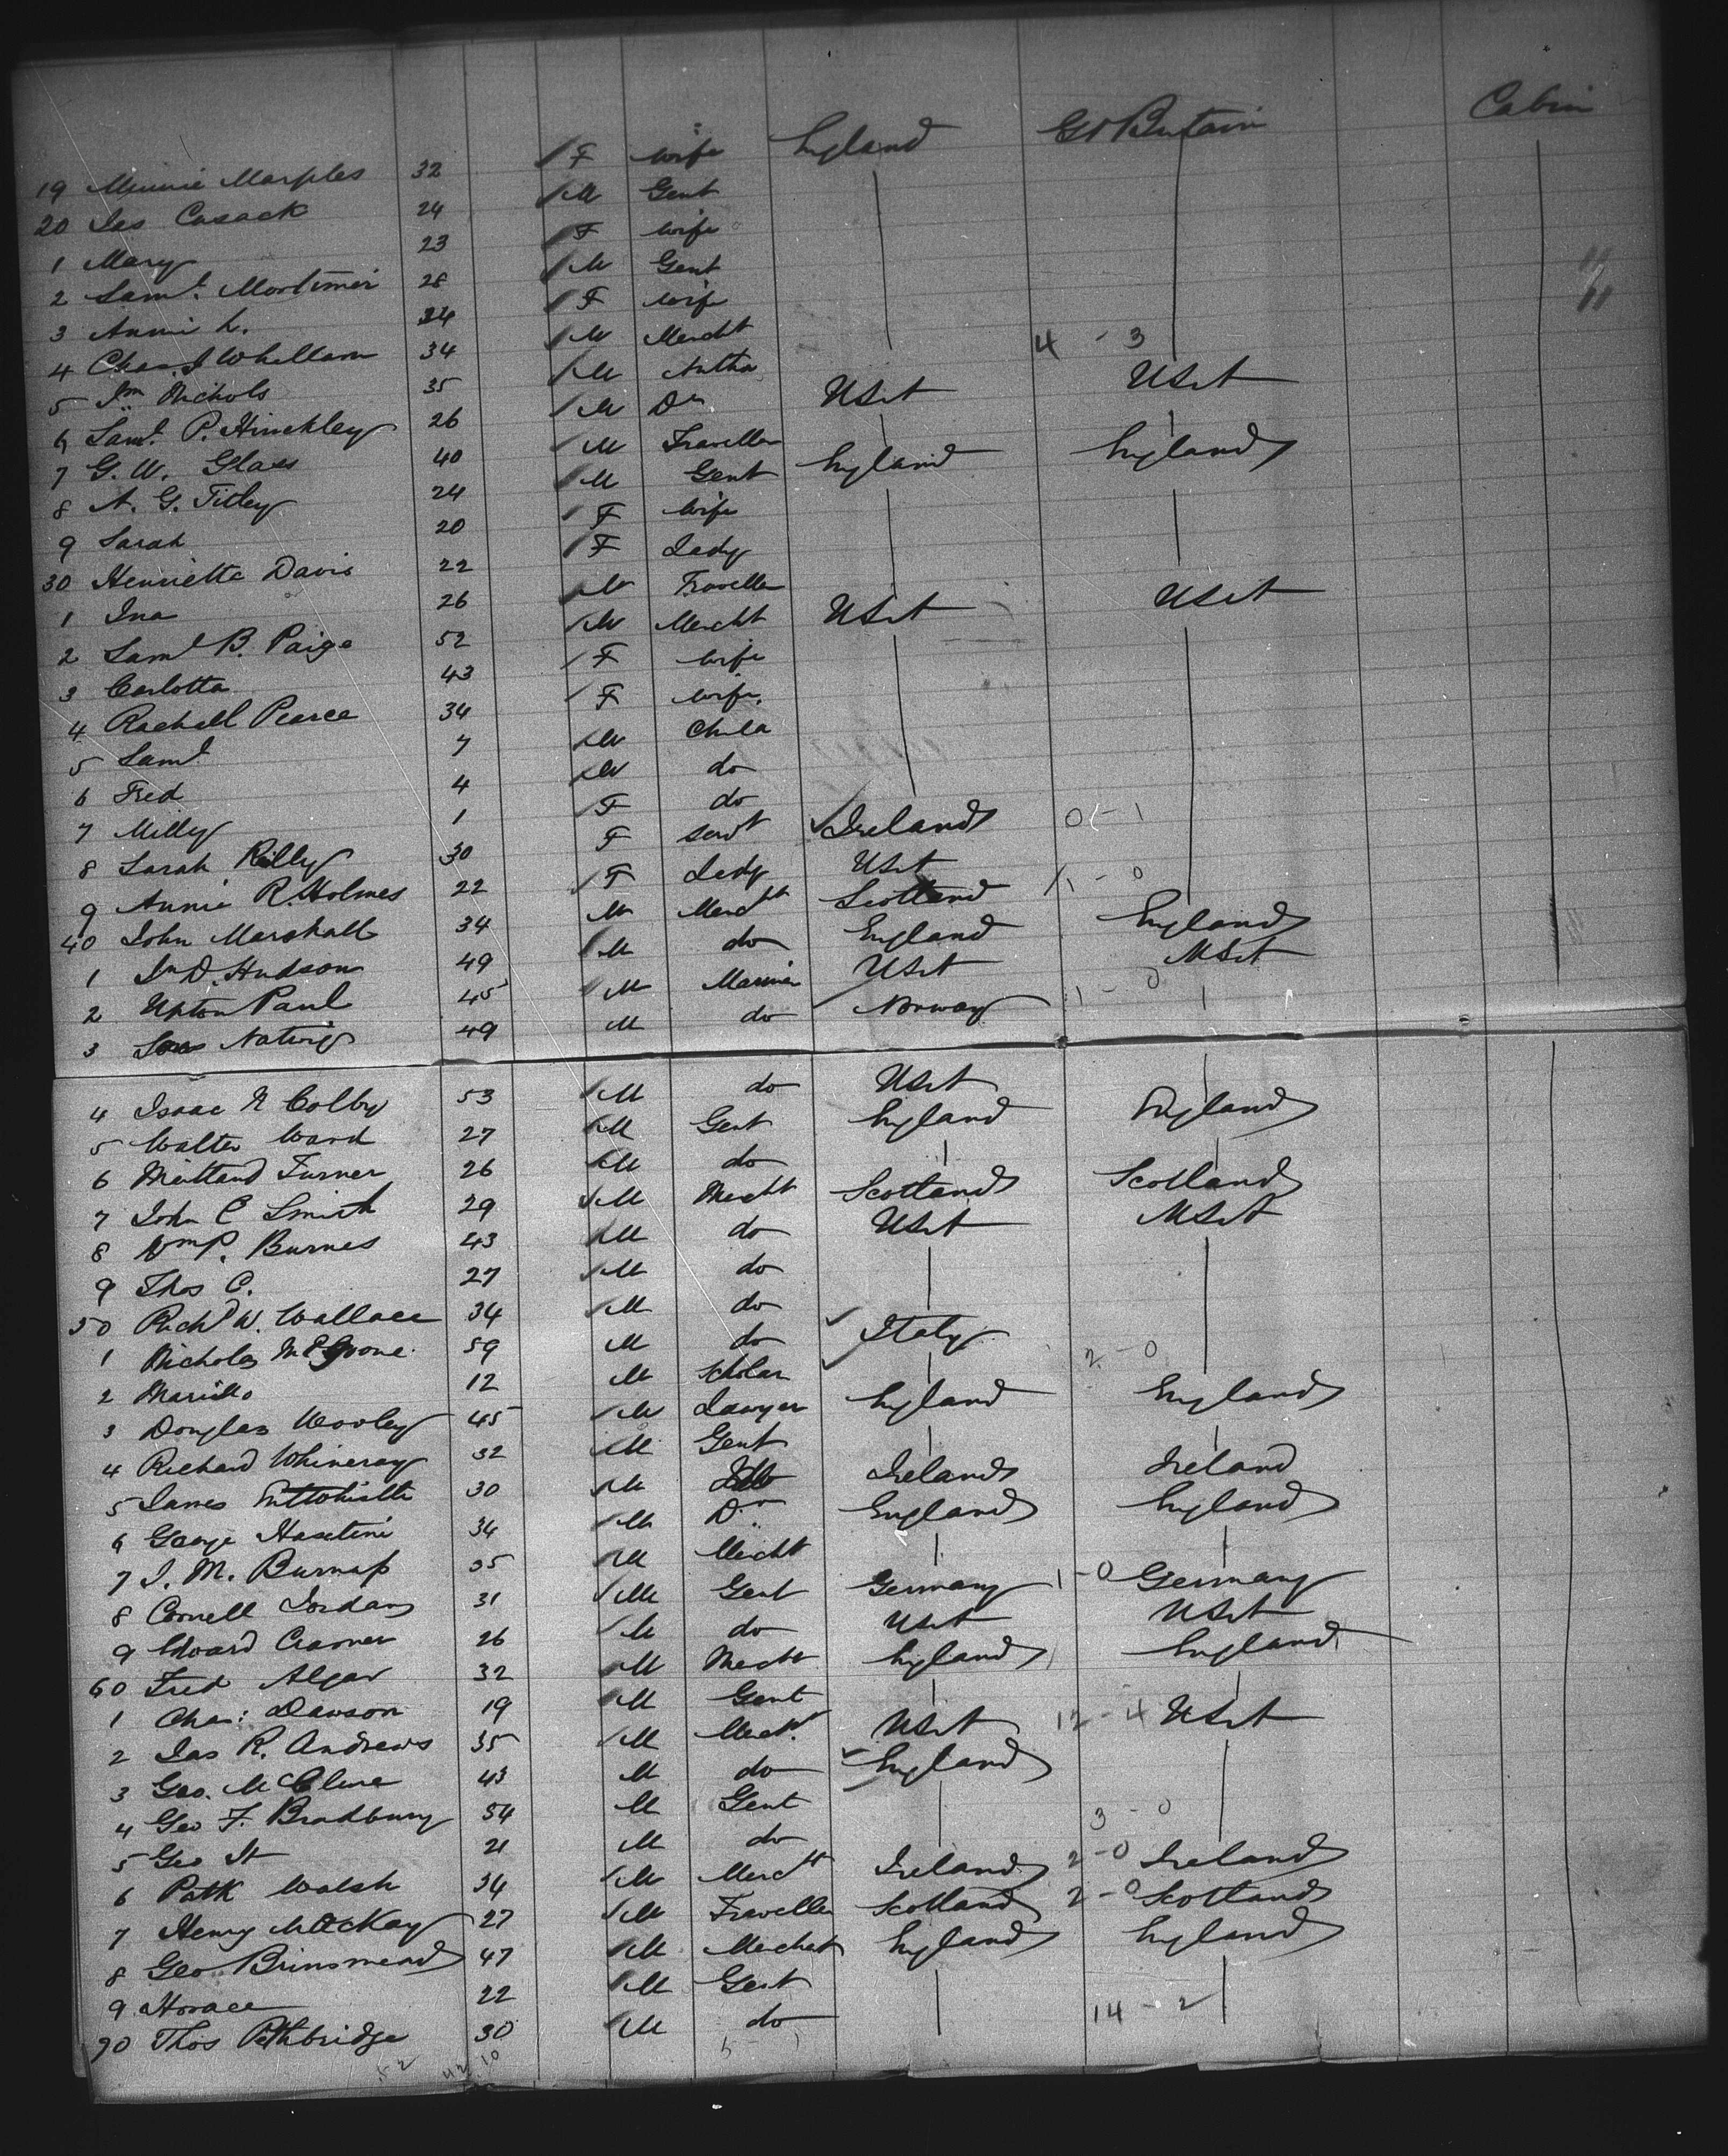 Cabin
19 Minnie Marples 32 F wife England Gt Britain
20 Jas Cusack 24 M Gent
1 Mary 23 F wife
2 Saml. Mortimer 28 M Gent
3 Annie L. 24 F wife
4 Chas. J Whellam 34 M Mercht 4 - 3
5 Jn Nichols 35 M USA USA
6 Saml. P. Hinckley 26 M Dr
7 G. W. Glass 40 M Traveller England England
8 A. G. Titley 24 M Gent
9 Sarah 20 F wife
30 Henrietta Davis 22 F Lady
1 Ina 26 Traveller
2 Saml B. Paige 52 M Mercht USA USA
3 Carlotta 43 F wife
4 Rachell Pearce 34 F wife
5 Saml 7 M Child
6 Fred 4 M do
7 Milly 1 F do
8 Sarah Rilly 30 F servt Ireland 0 - 1
9 Annie R. Holmes 22 F Lady USA
40 John Marshall 34 M Mercht Scotland 1 - 0
1 Jn D. Hudson 49 M do England England
2 Upton Paul 45 M Mariner USA USA
3 Natvig 49 M do Norway 1 - 0
4 Isaac N Colby 53 M do USA
5 Walter Ward 27 M Gent England England
6 Maitland Turner 26 M do
7 John C Smith 29 M Mercht Scotland Scotland
8 Wm P. Burnes 43 M do USA USA
9 Thos C. 27 M do
50 Richd W. Wallace 34 M do
1 Nicholas 59 M do Italy
2 12 M Scholar 2 - 0
3 Douglas Wooley 45 M Lawyer England England
4 Richard Whineray 32 M Gent
5 James 30 M Ireland Ireland
6 George Haseltine 34 M Dr England England
7 J. M. Burnap 35 M Mercht
8 Cornell Jordan 31 M Gent Germany 1 - 0 Germany
9 Edward Cramer 26 M do USA USA
60 Fred Algar 32 M Mercht England England
1 Chas: Dawson 19 M Gent
2 Jas R. Andrews 35 M Mercht. USA 12 - 4 USA
3 Geo. McClure 43 M do England
4 Geo F. Bradbury 54 M Gent 3 - 0
5 Geo 21 M do
6 Patk Walsh 34 M Mercht Ireland 2 - 0 Ireland
7 Henry McKay 27 M Traveller Scotland 2 - 0 Scotland
8 Geo Brinsmead 47 M Merchat England England
9 Horace 22 M Gent
70 Thos Pethbridge 30 M do 14 - 2
52 42 10 5 -